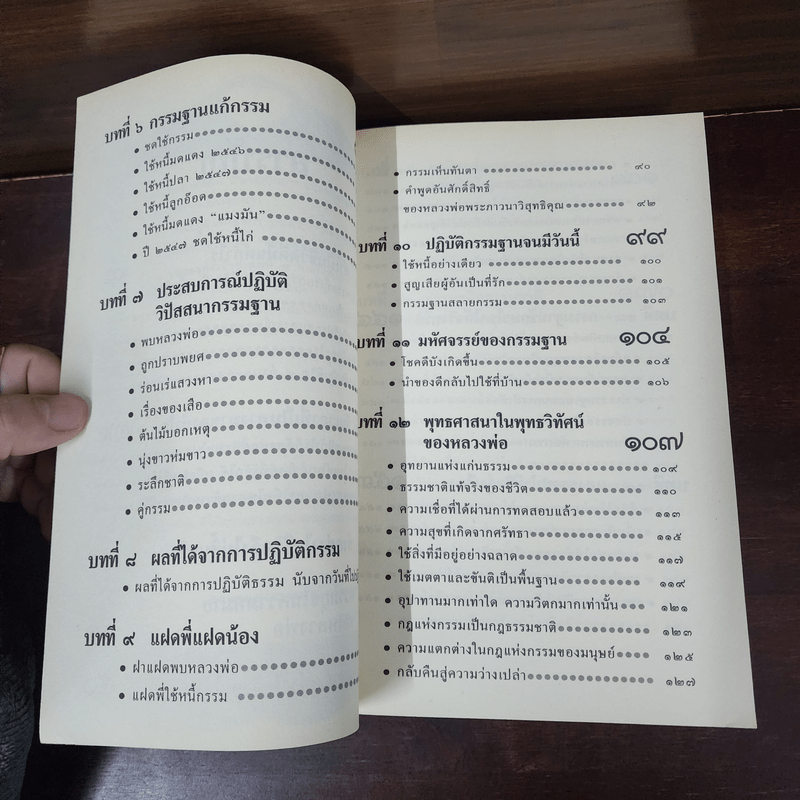 บทที่ ๖ กรรมฐานแก้กรรม
• ชดใช้กรรม
• ใช้หนี้มดแดง ๒๕๔๖
• ใช้หนี้ปลา ๒๕๔๗
• ใช้หนี้ลูกอ๊อด
• ใช้หนี้มดแดง “แมงมัน”
• ปี ๒๕๔๗ ชดใช้หนี้ไก่
บทที่ ๗ ประสบการณ์ปฏิบัติ
วิปัสสนากรรมฐาน
• พบหลวงพ่อ
• ถูกปราบพยศ
• ร่อนเร่แสวงหา
• เรื่องของเสือ
• ต้นไม้บอกเหตุ
• นุ่งขาวห่มขาว
• ระลึกชาติ
• คู่กรรม
บทที่ ๘ ผลที่ได้จากการปฏิบัติกรรม
• ผลที่ได้จากการปฏิบัติธรรม นับจากวันที่
บทที่ ๙ แฝดพี่แฝดน้อง
• ฝาแฝดพบหลวงพ่อ
• แฝดพี่ใช้หนี้กรรม
• กรรมเห็นทันตา ๙๐
• คำพูดอันศักดิ์สิทธิ์
ของหลวงพ่อพระภาวนาวิสุทธิคุณ ๙๒
บทที่ ๑๐ ปฏิบัติกรรมฐานจนมีวันนี้ ๙๙
• ใช้หนี้อย่างเดียว ๑๐๐
• สูญเสียผู้อันเป็นที่รัก ๑๐๑
• กรรมฐานสลายกรรม ๑๐๓
บทที่ ๑๑ มหัศจรรย์ของกรรมฐาน ๑๐๔
• โชคดีบังเกิดขึ้น ๑๐๕
• นำของดีกลับไปใช้ที่บ้าน ๑๐๖
บทที่ ๑๒ พุทธศาสนาในพุทธวิทัศน์
ของหลวงพ่อ ๑๐๗
• อุทยานแห่งแก่นธรรม ๑๐๙
• ธรรมชาติแท้จริงของชีวิต ๑๑๐
• ความเชื่อที่ได้ผ่านการทดสอบแล้ว ๑๑๓
• ความสุขที่เกิดจากศรัทธา ๑๑๕
• ใช้สิ่งที่มีอยู่อย่างฉลาด ๑๑๗
• ใช้เมตตาและขันติเป็นพื้นฐาน ๑๑๙
• อุปาทานมากเท่าใด ความวิตกมากเท่านั้น ๑๒๑
• กฎแห่งกรรมเป็นกฎธรรมชาติ ๑๒๓
• ความแตกต่างในกฎแห่งกรรมของมนุษย์ ๑๒๕
• กลับคืนสู่ความว่างเปล่า ๑๒๗